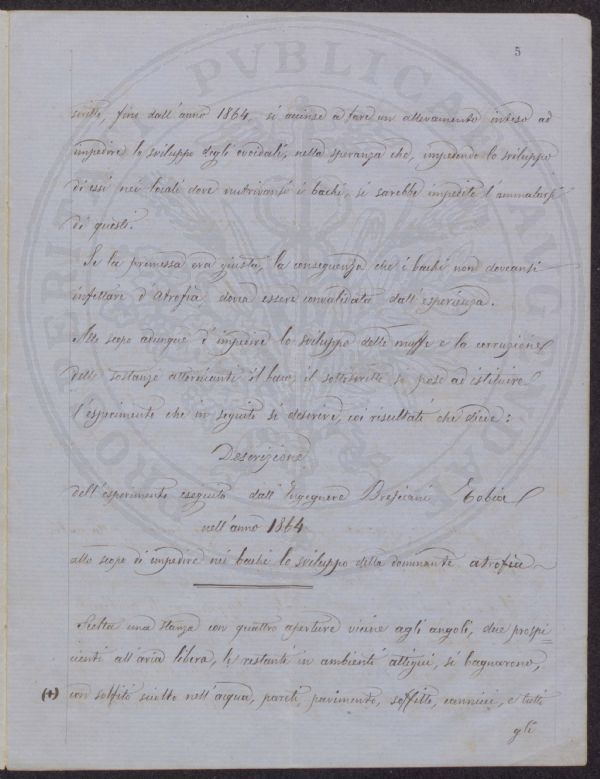 5
scritto, fino dall'anno 1864, si accinse a fare un allevamento inteso ad
impedire lo sviluppo degli ovoidali, nella speranza che, impedendo lo sviluppo
di essi nei locali dove nutrivansi i bachi, si sarebbe impedito l'ammalarsi
di questi.
Se la premessa era giusta, la conseguenza che i bachi non doveansi
infettare d'atrofia dovea essere convalidata dall'esperienza.
Allo scopo adunque d'impedire lo sviluppo delle muffe e la corruzione
delle sostanze attornianti il baco, il sottoscritto si pose ad istituire
l'esperimento che in seguito si descrive, coi risultati che diede:
Descrizione
dell'esperimento eseguito dall'Ingegnere Bresciani Tobia
nell'anno 1864
allo scopo di impedire nei bachi lo sviluppo della dominante atrofia
Scelta una stanza con quattro aperture vicine agli angoli, due prospi=
cienti all'aria libera, le restanti in ambienti attigui, si bagnarono,
(+) con solfito sciolto nell'acqua, pareti, pavimento, soffitto, cannicci, e tutti
gli
PVBLICAE
PROSPERITATI